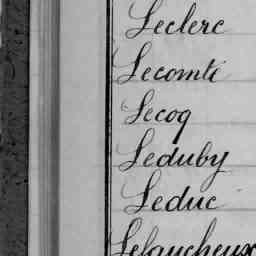 Leclerc
Lecomte
Lecoq
Leduby
Leduc
Lefaucheux